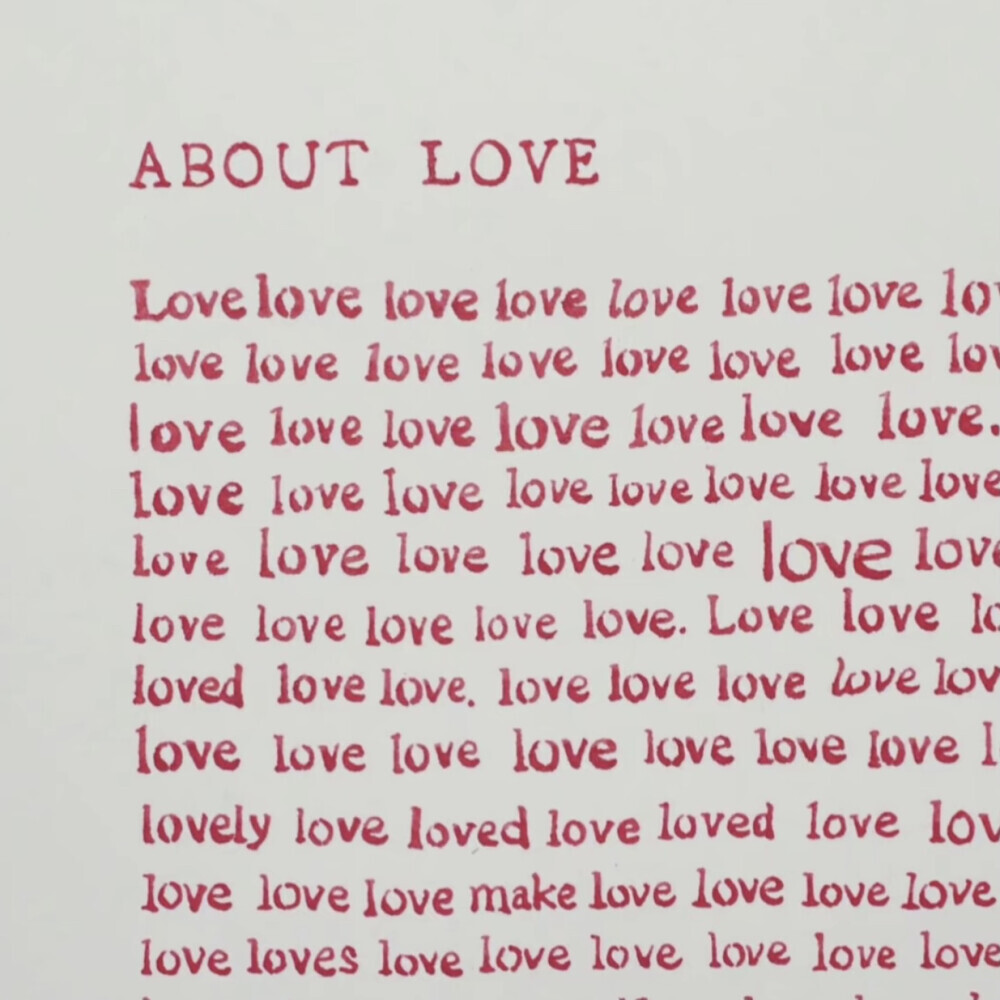 ABOUT LOVE
Love love love love love love love lo
love love love love love love love lov
love love love love love love love.
love love love love love love love love
love love love love love love love
love love love love love. Love love lo
loved love love. love love love love lov
love love love love love love love l
lovely love loved love loved love lov
love love love make love love love love
love loves love love love love love love